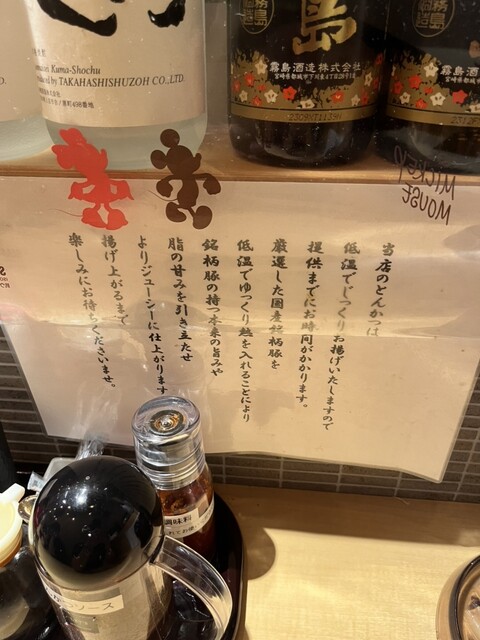 Kuma-Shochu
produced by TAKAHASHISHUZOH CO.,LTD.
霧島
島
霧島酒造株式会社
2309X7113SH
霧島酒造
2312F
MICKEY
MOUSE
当店のとんかつは
低温でじっくりお揚げいたしますので
提供までにお時間がかかります。
厳選した国産銘柄豚を
低温でゆっくり熱を入れることにより
銘柄豚の持つ本来の旨みや
脂の甘みを引き立たせ
よりジューシーに仕上がります
揚げ上がるまで
楽しみにお待ちくださいませ。
調味料
ソース